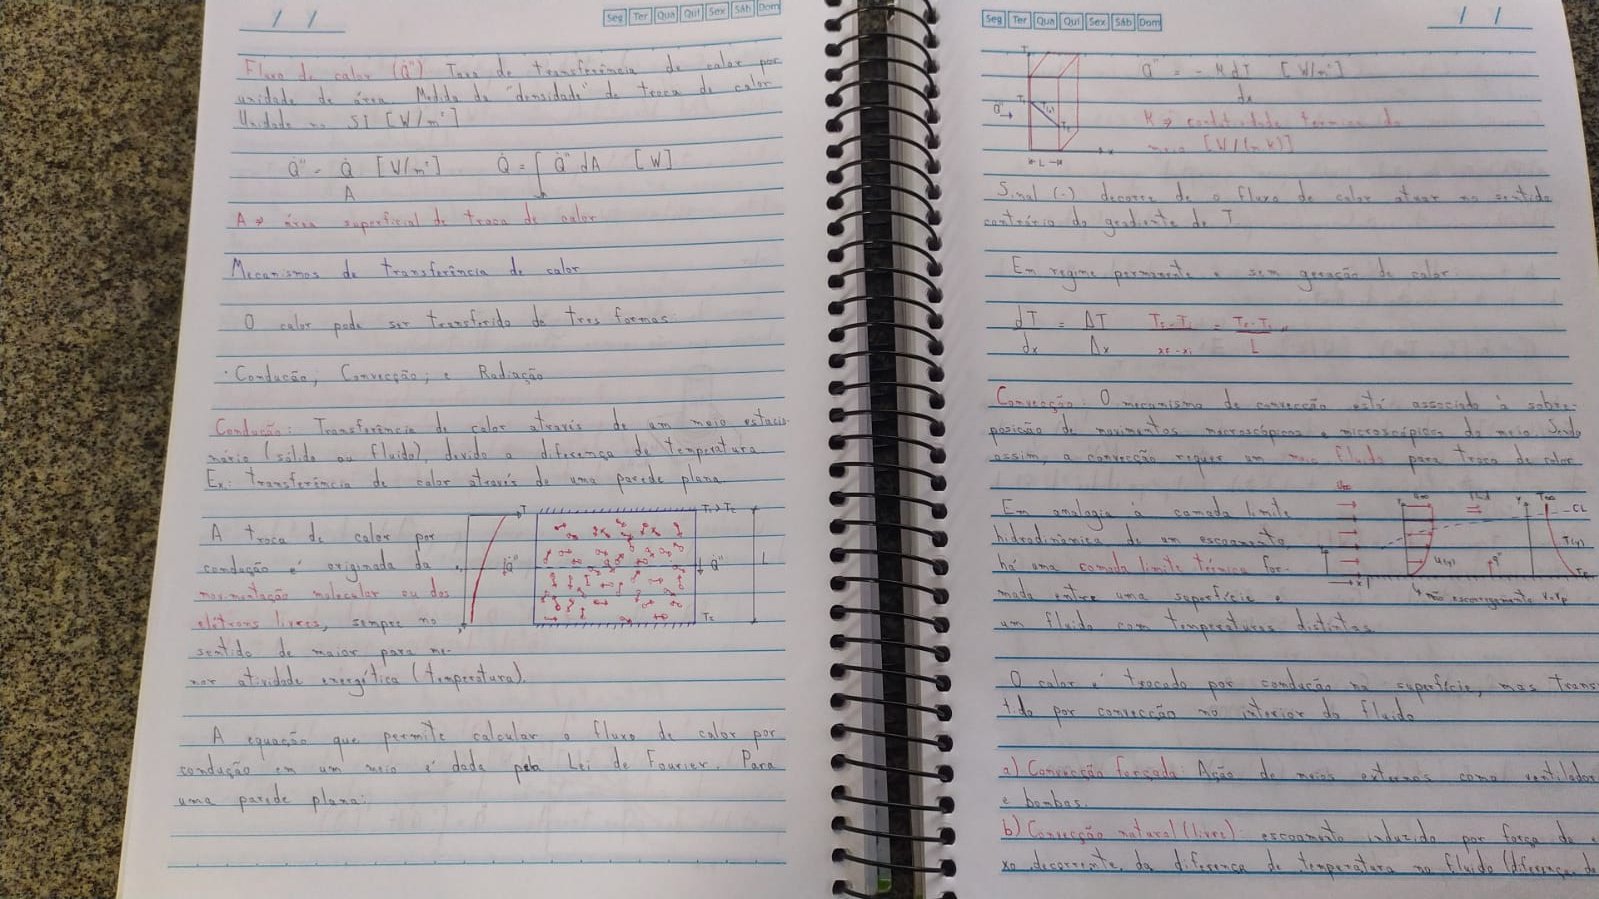 / /
Seg Ter Qua Qui Sex Sáb Dom
Fluxo de calor (Q̇") Taxa de transferência de calor por
unidade de área. Medida da "densidade" de troca de calor
Unidade no SI [W/m²]
Q̇" = Q̇/A [W/m²] Q̇ = ∫ Q̇" dA [W]
A → área superficial de troca de calor
Mecanismos de transferência de calor
O calor pode ser transferido de tres formas:
· Condução; Convecção; e Radiação
Condução: Transferência de calor através de um meio estacio-
nário (sólido ou fluido), devido a diferença de temperatura
Ex.: transferência de calor através de uma parede plana.
A troca de calor por
condução é originada da
movimentação molecular ou dos
elétrons livres, sempre no
sentido de maior para me-
nor atividade energética (temperatura).
T
Q̇"
T₁ > T₂
Q̇"
L
T₂
A equação que permite calcular o fluxo de calor por
condução em um meio é dada pela Lei de Fourier. Para
uma parede plana:
Seg Ter Qua Qui Sex Sáb Dom
/ /
T
Q̇"
T₁
T(x)
T₂
L
x
Q̇" = - K dT/dx [W/m²]
K → condutividade térmica do
meio [W/(m.K)]
Sinal (-) decorre de o fluxo de calor atuar no sentido
contrário do gradiente de T
Em regime permanente e sem geração de calor
dT/dx = ΔT/Δx
L
Convecção: O mecanismo de convecção está associado à sobre-
posição de movimentos macroscópicos e microscópicos do meio. Sendo
assim, a convecção requer um meio fluido para troca de calor
Em analogia à camada limite
hidrodinâmica de um escoamento,
há uma camada limite térmica for-
mada entre uma superfície e
um fluido com temperaturas distintas
U∞
x
U∞
u(y)
q"
y
T∞
CL
T(y)
não escorregamento
O calor é trocado por condução na superfície, mas trans
tido por convecção no interior do fluido
a) Convecção forçada: Ação de meios externos como ventilador
e bombas.
b) Convecção natural (livre): escoamento induzido por força de e
xo decorrente da diferença de temperatura no fluido (diferença de